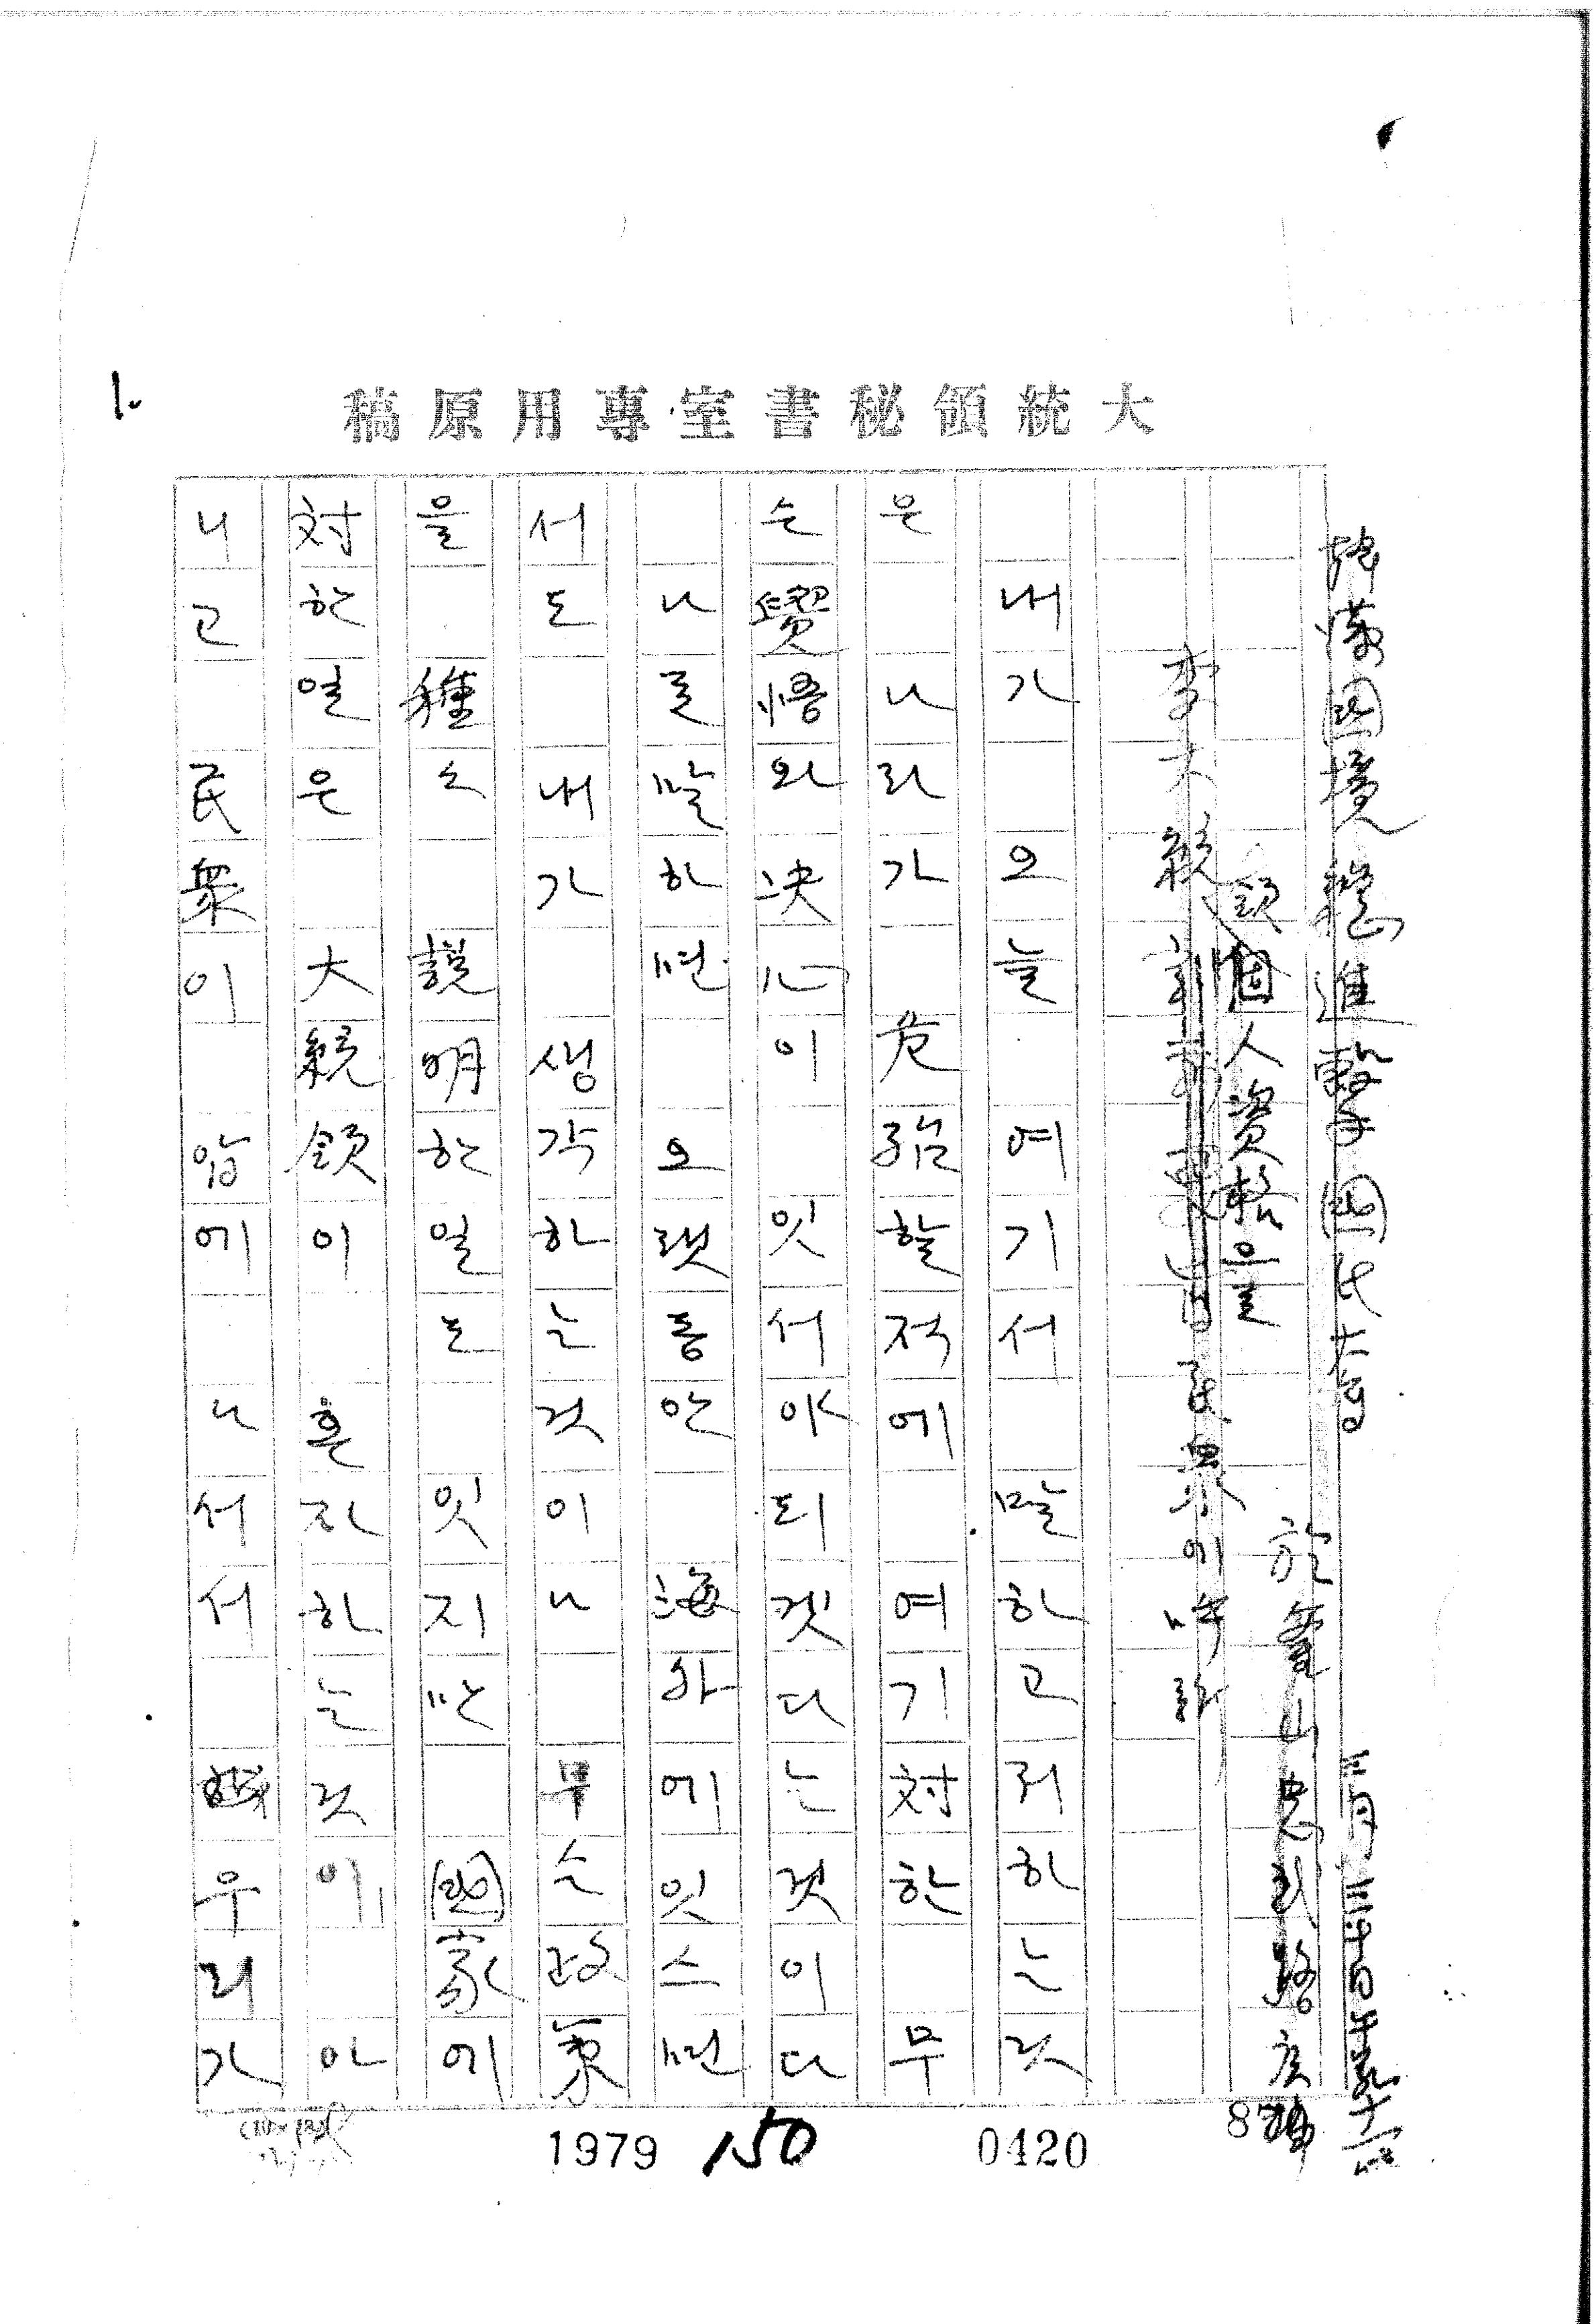 大統領秘書室專用原稿
1.
韓滿國境總進擊國民大會
於釜山忠武路廣場
個人資格을
李大統領 民衆에
내가 오늘 여기서 말하고저하는것
은 나라가 危殆할적에 여기対한 무
슨 覺悟와決心이 잇서야되겟다는것이다
나를말하면 오랫동안 海外에잇스면
서도 내가 생각하는것이니 무슨政策
을 種々 説明한일도 잇지만 國家에
対한일은 大統領이 혼자하는것이 아
니고 民衆이 앞에 나서서 우리가
1979 150 0420